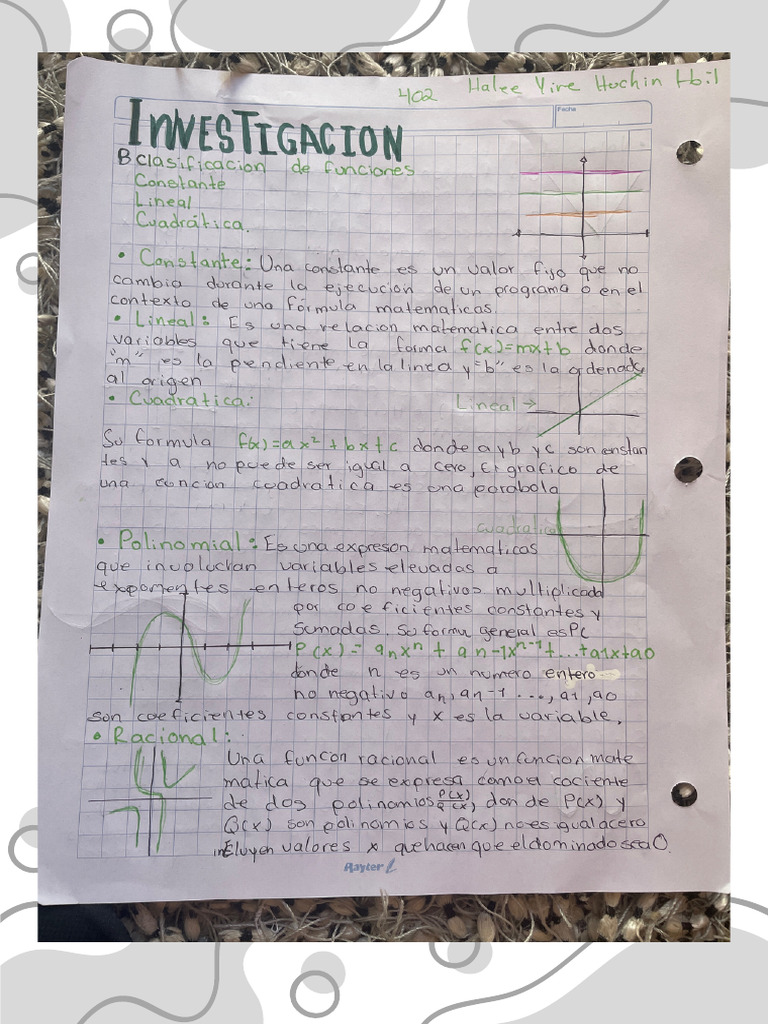 402 Halee Yire Huchin Hbil
Fecha
INVESTIGACION
B clasificacion de funciones
Constante
Lineal
Cuadrática.
• Constante: Una constante es un valor fijo que no
cambia durante la ejecucion de un programa o en el
contexto de una formula matematicas.
• Lineal: Es una relacion matematica entre dos
variables que tiene la forma f(x)=mx+b donde
"m" es la pendiente en la linea y "b" es la ordenada
al origen
• Cuadratica:
Lineal →
Su formula f(x)=ax²+bx+c donde a y b y c son constan
tes y a no puede ser igual a cero, El grafico de
una cuncion cuadratica es una parabola
cuadratica
• Polinomial: Es una expreson matematicas
que involucran variables elevadas a
exponentes enteros no negativos multiplicada
por coeficientes constantes y
sumadas. Su forma general es PC
P(x) = anxⁿ + an-1xⁿ⁻¹+...+a1x+a0
donde n es un numero entero
no negativo an, an-1 ..., a1, a0
son coeficientes constantes y x es la variable,
• Racional:
Una funcon racional es un funcion mate
matica que se expresa como el cociente
de dos polinomios P(x)/Q(x), don de P(x) y
Q(x) son polinomios y Q(x) no es igual a cero
valores x que hacen que el dominado sea 0.
Rayter